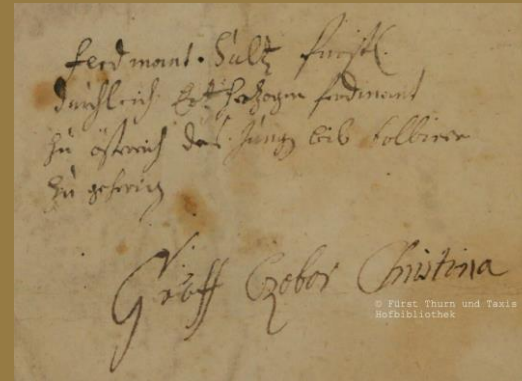 ferdinant. Sultz fürstl.
durchleich Ertzherzogen ferdinant
zu östereich des Jüng
zu gehering
Greff Czobor Christina
© Fürst Thurn und Taxis
Hofbibliothek